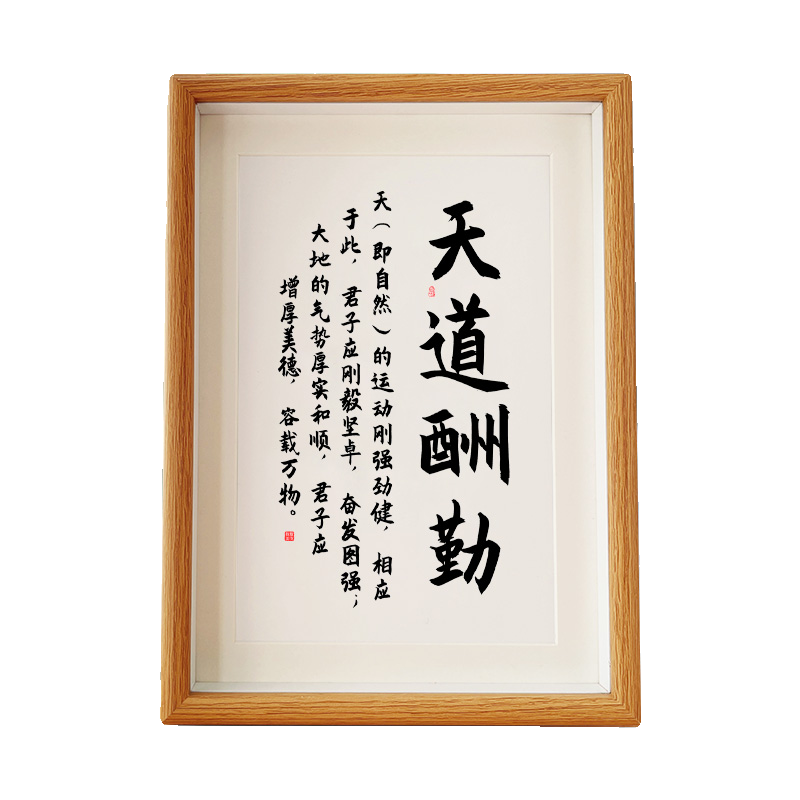 天道酬勤
天（即自然）的运动刚强劲健，相应
于此，君子应刚毅坚卓，奋发图强；
大地的气势厚实和顺，君子应
增厚美德，容载万物。